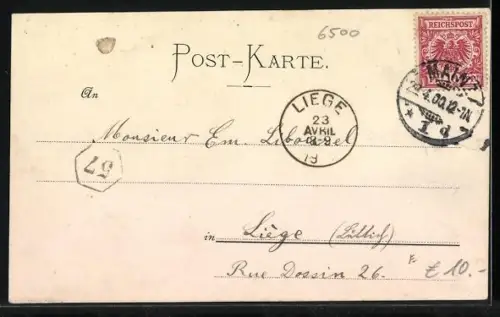 6500
REICHSPOST
POST-KARTE.
MAINZ
4.00.12-1N
1 d
An
LIEGE
23
AVRIL
8-9
19
Monsieur Em.
57
in Liège (Lüttich)
Rue Dossin 26.
£ 10.-